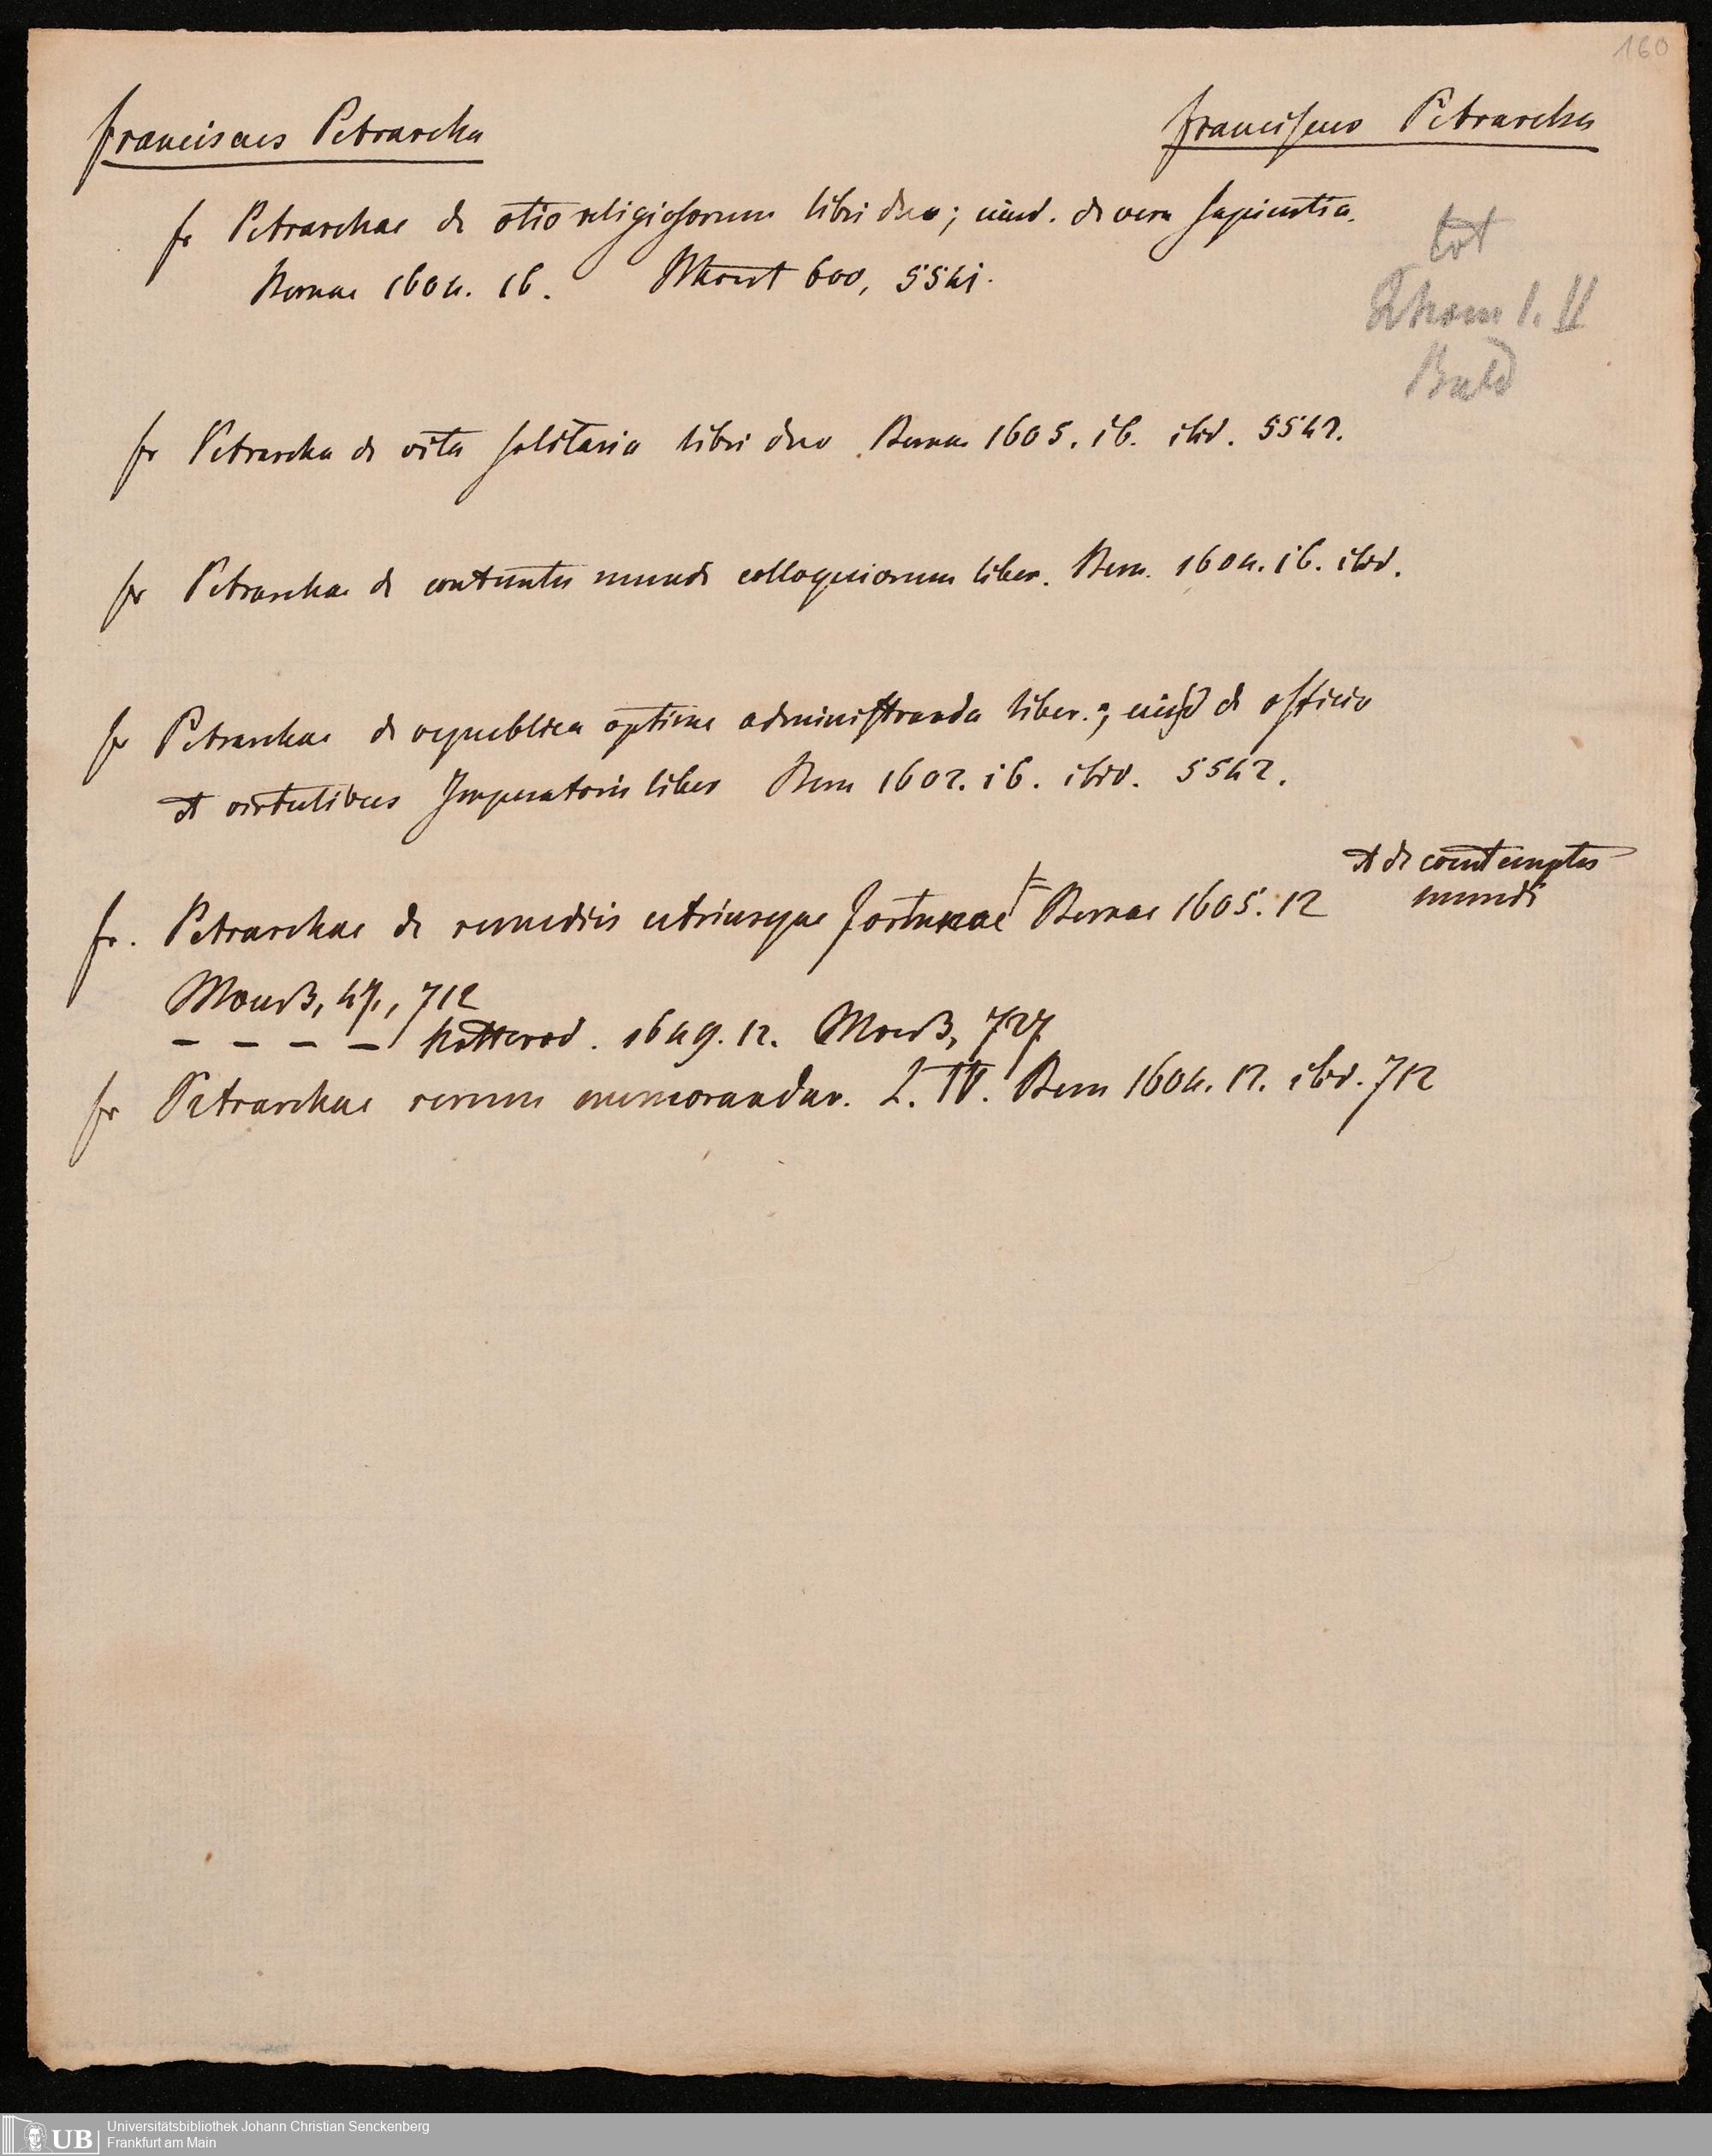 160
Franciscus Petrarcha
Franciscus Petrarcha
fr Petrarchae de otio religiosorum libri duo; eiusd. de vera sapientia.
Bernae 1604. 16. 600, 5541.
tot
I. II
Bald
fr Petrarcha de vita solitaria libri duo Bernae 1605. 16. ibid. 5542.
fr Petrarchae de contemtu mundi colloquiorum liber. Bern. 1604. 16. ibid.
fr Petrarchae de republica optime administranda liber.; eiusd de officio
et virtutibus Imperatoris liber Bern 1602. 16. ibid. 5542.
et de contemptus
mundi
fr. Petrarchae de remediis utriusque fortunae Bernae 1605. 12
712
– – – – Rotterod. 1649. 12. 727
fr Petrarchae rerum memorandar. L. IV. Bern 1604. 12. ibid. 712
UB
Universitätsbibliothek Johann Christian Senckenberg
Frankfurt am Main